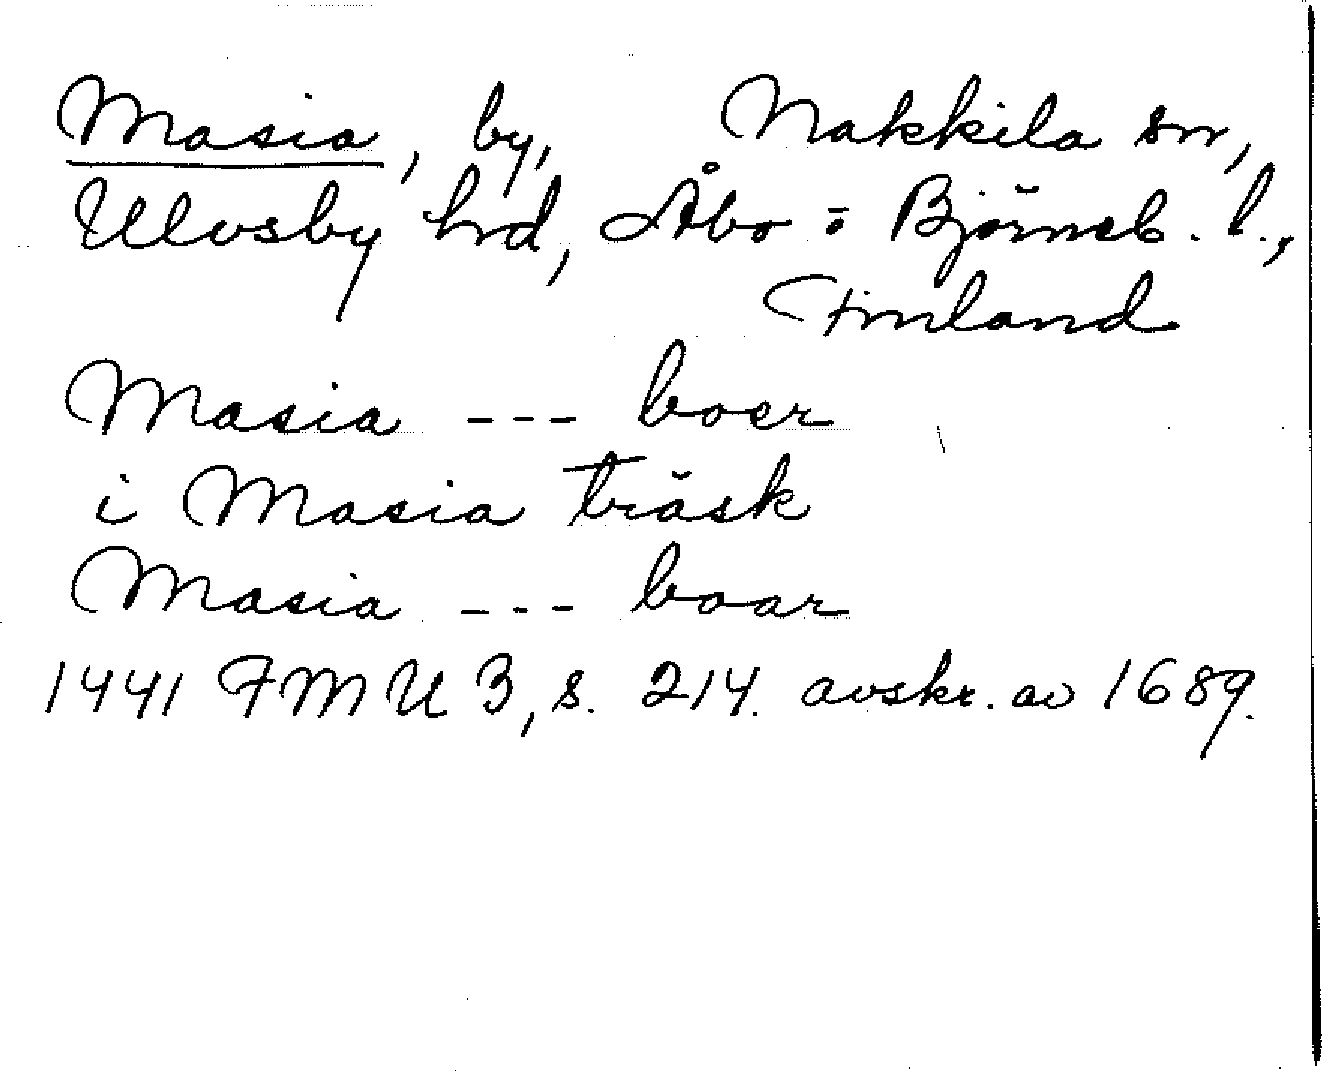 Masia, by, Nakkila sn,
Ulvsby hrd, Åbo o Björneb. l.,
Finland
Masia --- boer
i Masia träsk
Masia --- boar
1441 FMU 3, s. 214. avskr. av 1689.